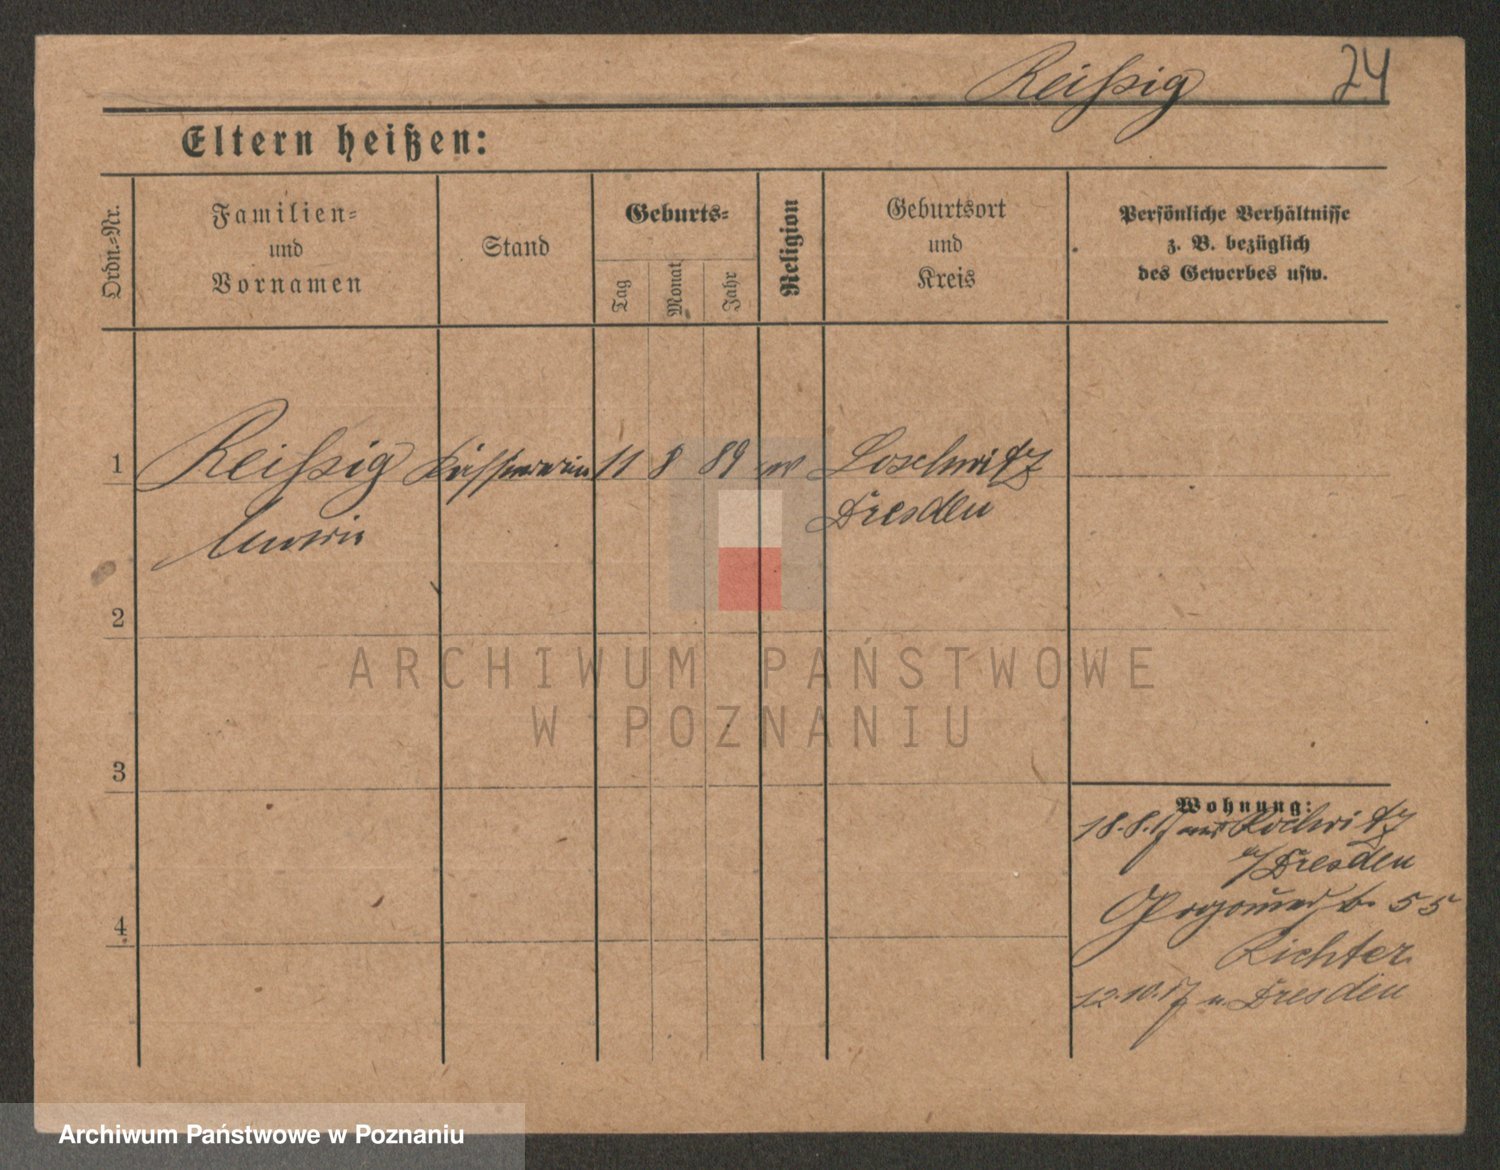 Reißig 24
Eltern heißen:
Ordn.=Nr.
Familien=
und
Vornamen
Stand
Geburts=
Tag
Monat
Jahr
Religion
Geburtsort
und
Kreis
Persönliche Verhältnisse
z. B. bezüglich
des Gewerbes usw.
1 Reißig 11 8 89 Loschwitz
Dresden
2
ARCHIWUM PAŃSTWOWE
W POZNANIU
3
Wohnung:
18.8.17 aus Lochwitz
Dresden
55
Richter
12.10.17 n. Dresden
4
Archiwum Państwowe w Poznaniu